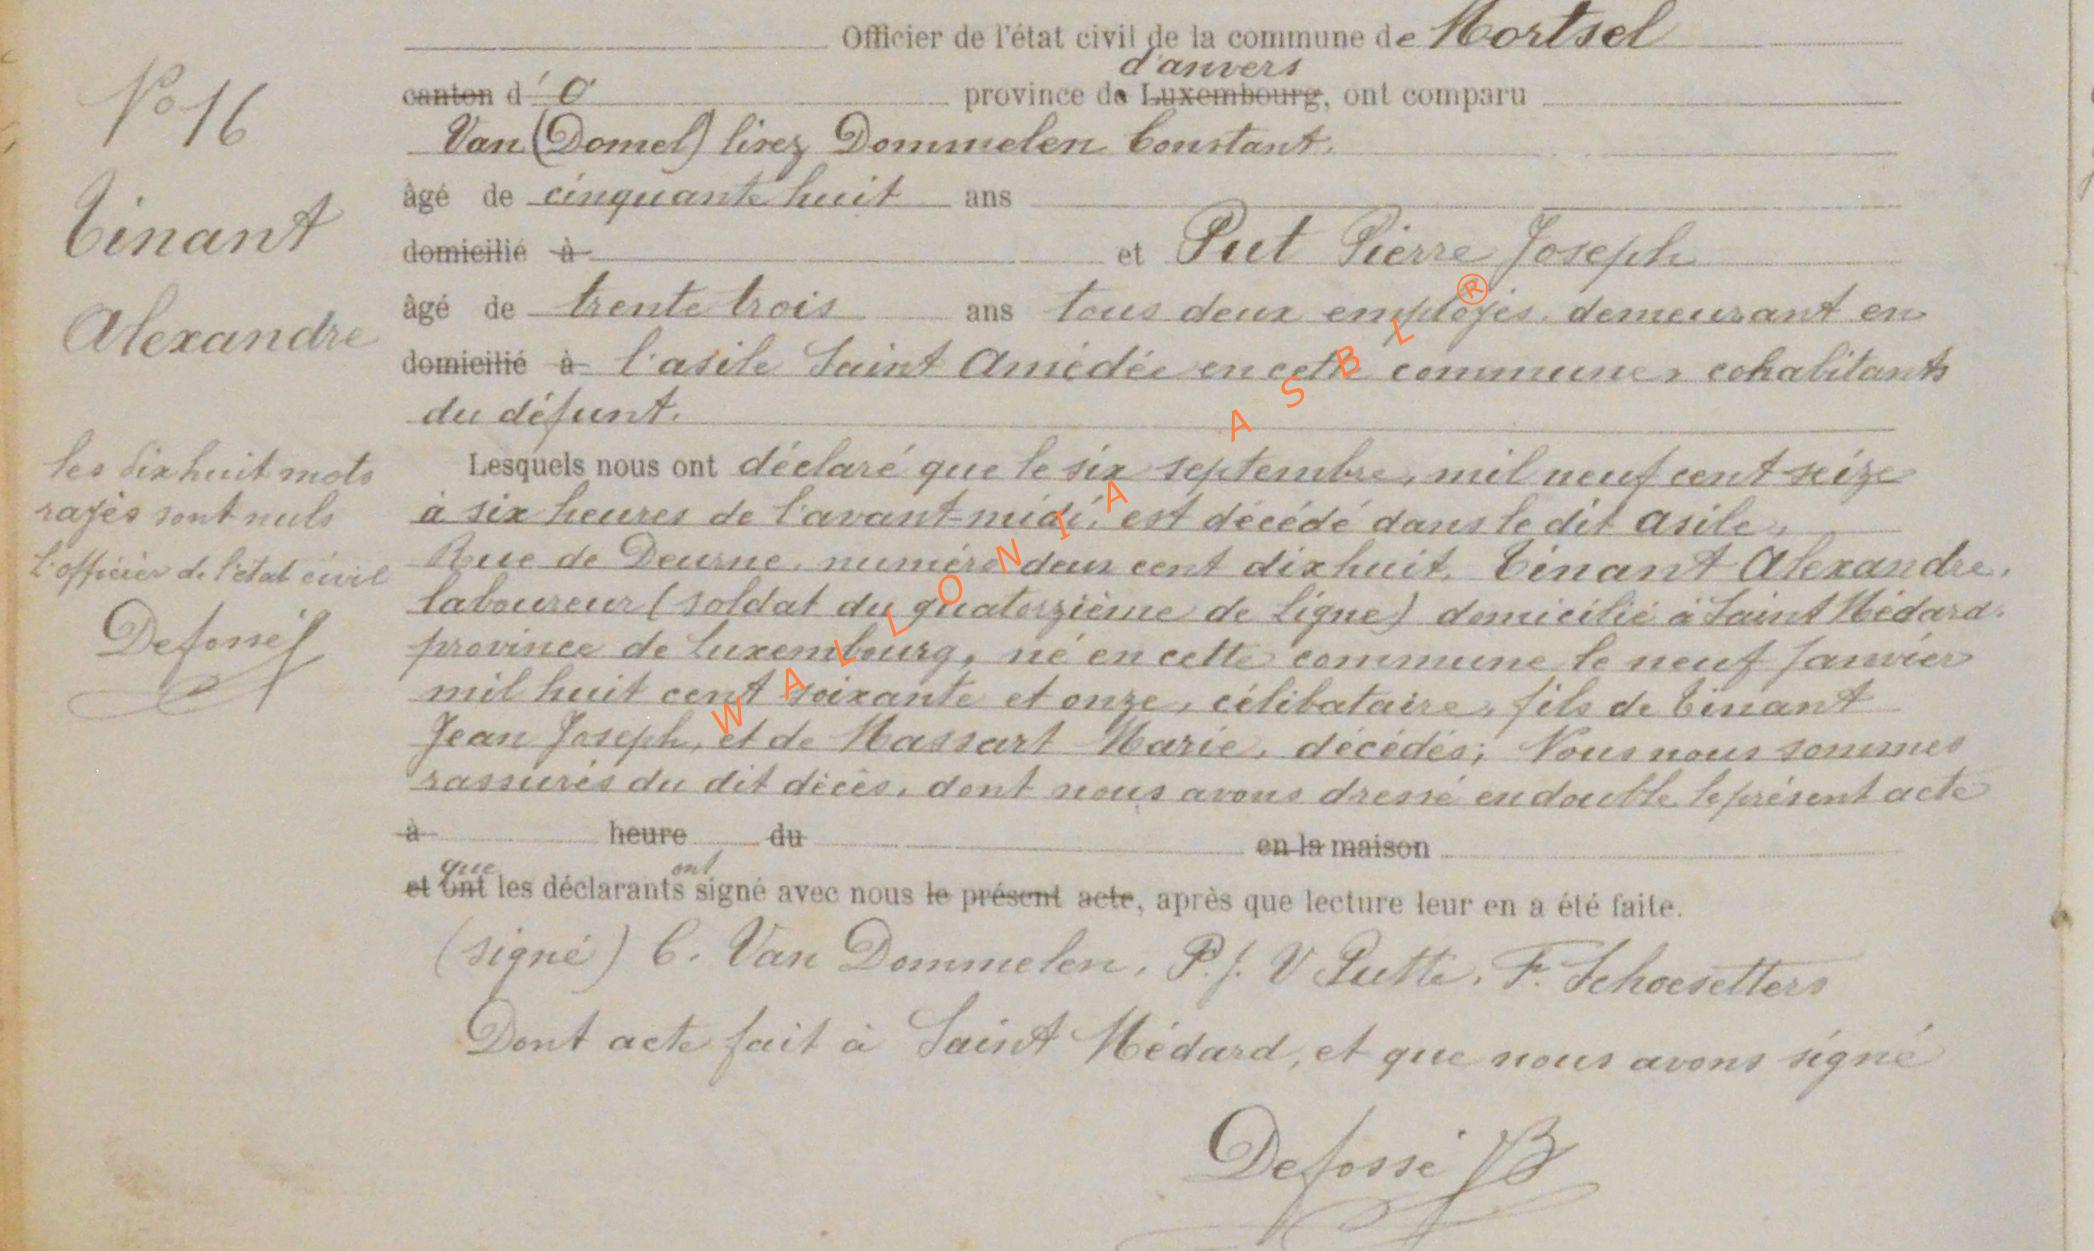 Officier de l'état civil de la commune de Mortsel
d'anvers
canton d' province de Luxembourg, ont comparu
Van (Domel) lisez Dommelen Constant.
âgé de cinquante huit ans
domicilié à et Put Pierre Joseph
âgé de trente trois ans tous deux employés, demeurant en
domicilié à l'asile Saint Amédée en cette commune, cohabitants
du défunt.
Lesquels nous ont déclaré que le six septembre, mil neuf cent seize
à six heures de l'avant-midi, est décédé dans le dit asile,
Rue de Deurne, numéro deux cent dixhuit, Tinant Alexandre,
laboureur (soldat du quatorzième de Ligne) domicilié à Saint Médard.
province de Luxembourg, né en cette commune le neuf Janvier
mil huit cent soixante et onze, célibataire, fils de Tinant
Jean Joseph, et de Massart Marie, décédés; Nous nous sommes
rassurés du dit décès, dont nous avons dressé en double le présent acte
à heure du en la maison
que ont
et ont les déclarants signé avec nous le présent acte, après que lecture leur en a été faite.
(signé) C. Van Dommelen, P. J. V Putte, F. Schoesetters
Dont acte fait à Saint Médard, et que nous avons signé
Defossé
N° 16
Tinant
Alexandre
les dixhuit mots
rayés sont nuls
l'officier de l'état civil
Defossé
WALLONIA ASBL ®